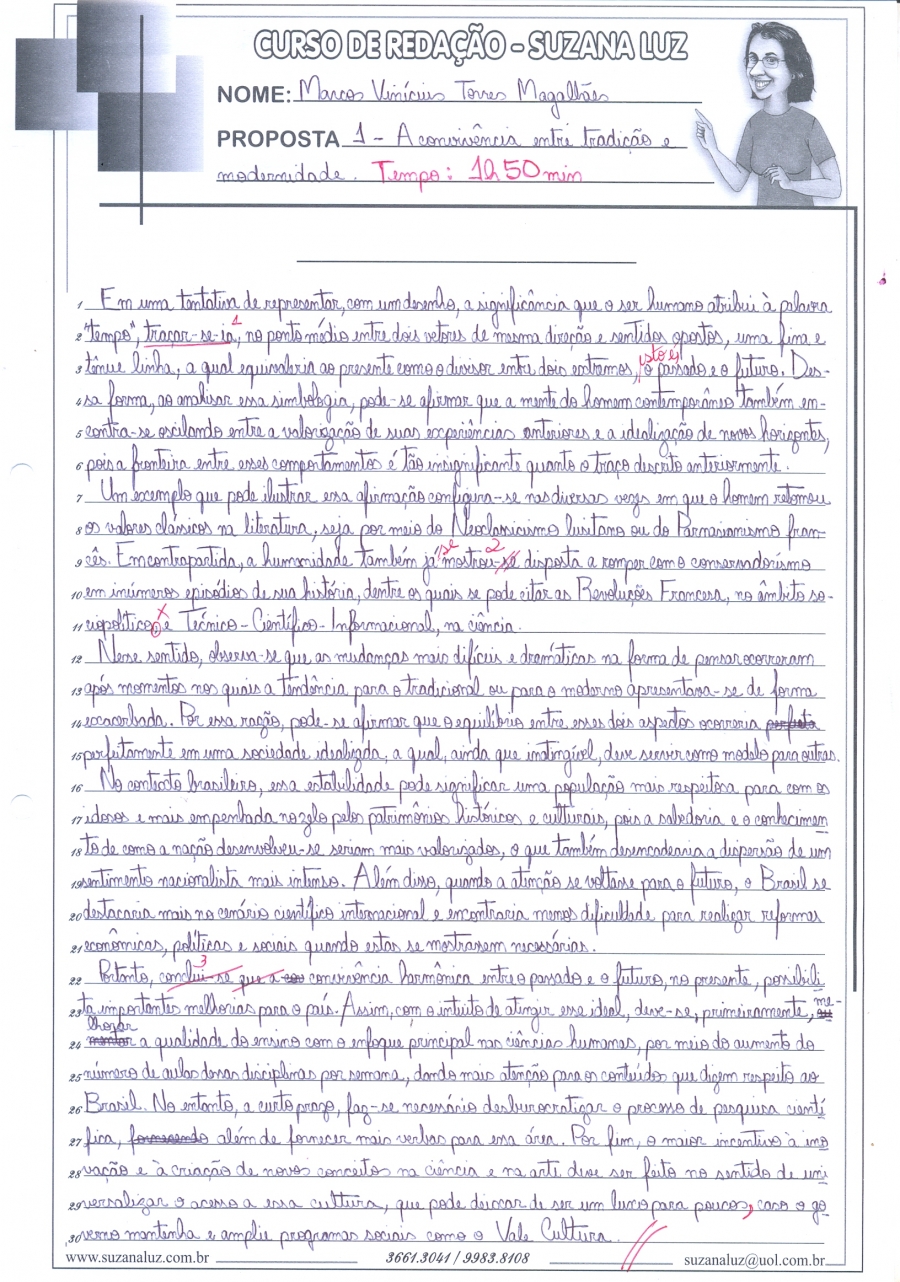 CURSO DE REDAÇÃO - SUZANA LUZ
NOME: Marcos Vinícius Torres Magalhães
PROPOSTA 1 - A convivência entre tradição e
modernidade. Tempo: 1h50min
1 Em uma tentativa de representar, com um desenho, a significância que o ser humano atribui à palavra
1
2 "tempo", traçar-se-ia, no ponto médio entre dois vetores de mesma direção e sentidos opostos, uma fina e
isto é,
3 tênue linha, a qual equivaleria ao presente como o divisor entre dois extremos, o passado e o futuro. Des-
4 sa forma, ao analisar essa simbologia, pode-se afirmar que a mente do homem contemporâneo também en-
5 contra-se oscilando entre a valorização de suas experiências anteriores e a idealização de novos horizontes,
6 pois a fronteira entre esses comportamentos é tão insignificante quanto o traço descrito anteriormente.
7 Um exemplo que pode ilustrar essa afirmação configura-se nas diversas vezes em que o homem retomou
8 os valores clássicos na literatura, seja por meio do Neoclassicismo lusitano ou do Parnasianismo fran-
se 2
9 cês. Em contrapartida, a humanidade também já mostrou-se disposta a romper com o conservadorismo
10 em inúmeros episódios de sua história, dentre os quais se pode citar as Revoluções Francesa, no âmbito so-
x
11 ciopolítico, e Técnico-Científico-Informacional, na ciência.
12 Nesse sentido, observa-se que as mudanças mais difíceis e dramáticas na forma de pensar ocorreram
13 após momentos nos quais a tendência para o tradicional ou para o moderno apresentava-se de forma
14 exacerbada. Por essa razão, pode-se afirmar que o equilíbrio entre esses dois aspectos ocorreria
15 perfeitamente em uma sociedade idealizda, a qual, ainda que inatingível, deve servir como modelo para outras.
16 No contexto brasileiro, essa estabilidade pode significar uma população mais respeitosa para com os
17 idosos e mais empenhada no zelo pelos patrimônios históricos e culturais, pois a sabedoria e o conhecimen
18 to de como a nação desenvolveu-se seriam mais valorizados, o que também desencadearia a dispersão de um
19 sentimento nacionalista mais intenso. Além disso, quando a atenção se voltasse para o futuro, o Brasil se
20 destacaria mais no cenário científico internacional e encontraria menos dificuldade para realizar reformas
21 econômicas, políticas e sociais quando estas se mostrassem necessárias.
3
22 Portanto, conclui-se que a convivência harmônica entre o passado e o futuro, no presente, possibili
23 ta importantes melhorias para o país. Assim, com o intuito de atingir esse ideal, deve-se, primeiramente, me-
lhorar
24 a qualidade do ensino com o enfoque principal nas ciências humanas, por meio do aumento do
25 número de aulas dessas disciplinas por semana, dando mais atenção para os conteúdos que dizem respeito ao
26 Brasil. No entanto, a curto prazo, faz-se necessário desburocratizar o processo de pesquisa cientí
27 fica, além de fornecer mais verbas para essa área. Por fim, o maior incentivo à ino
28 vação e à criação de novos conceitos na ciência e na arte deve ser feito no sentido de uni
29 versalizar o acesso a essa cultura, que pode deixar de ser um luxo para poucos, caso o go
30 verno mantenha e amplie programas sociais como o Vale Cultura.
www.suzanaluz.com.br 3661.3041 / 9983.8108 suzanaluz@uol.com.br